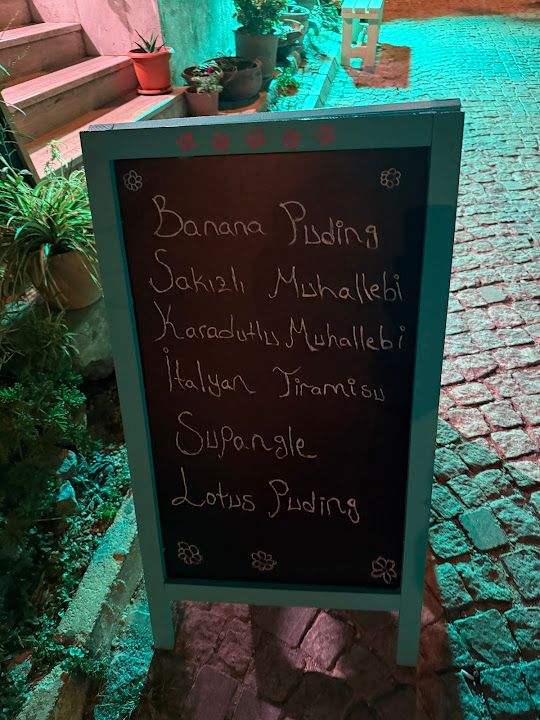 Banana Puding
Sakızlı Muhallebi
Karadutlu Muhallebi
İtalyan Tiramisu
Supangle
Lotus Puding